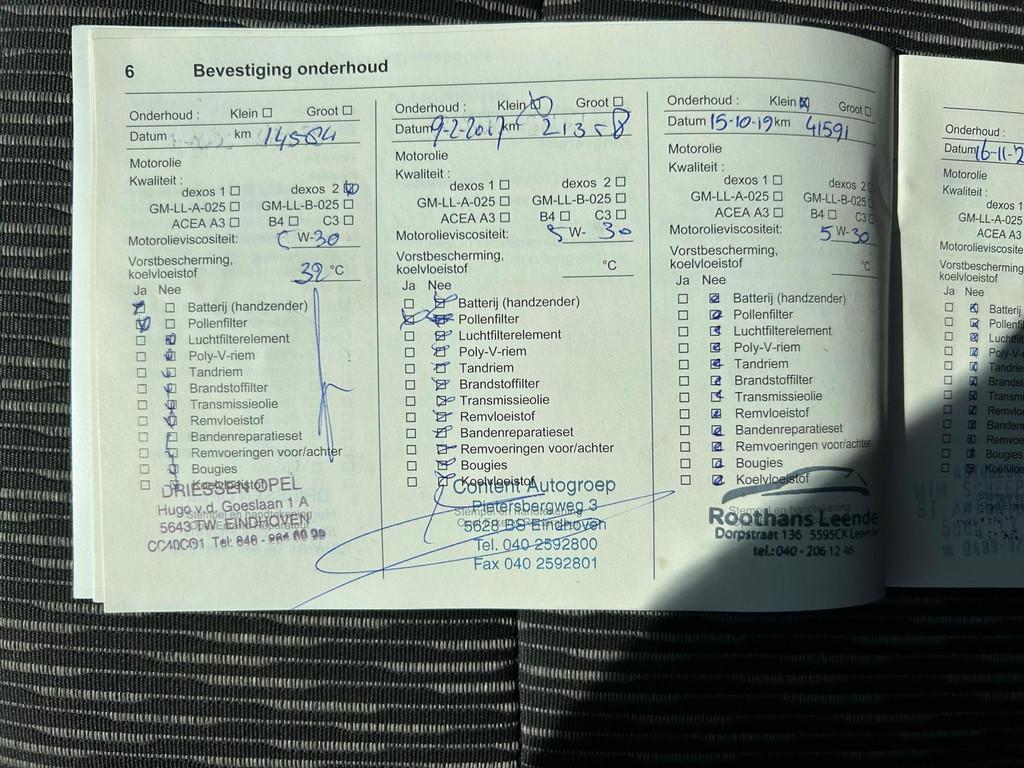 6 Bevestiging onderhoud
Onderhoud : Klein Groot
Datum km 14584
Motorolie
Kwaliteit :
dexos 1 dexos 2
GM-LL-A-025 GM-LL-B-025
ACEA A3 B4 C3
Motorolieviscositeit: W-30
Vorstbescherming,
koelvloeistof 32 °C
Ja Nee
Batterij (handzender)
Pollenfilter
Luchtfilterelement
Poly-V-riem
Tandriem
Brandstoffilter
Transmissieolie
Remvloeistof
Bandenreparatieset
Remvoeringen voor/achter
Bougies
Koelvloeistof
Stempel en handtekening
DRIESSEN OPEL
Hugo v.d. Goeslaan 1 A
5643 TW EINDHOVEN
CC40C01 Tel: 040 -
Onderhoud : Klein Groot
Datum 9-2-2017 km
Motorolie
Kwaliteit :
dexos 1 dexos 2
GM-LL-A-025 GM-LL-B-025
ACEA A3 B4 C3
Motorolieviscositeit: 5 W- 30
Vorstbescherming,
koelvloeistof °C
Ja Nee
Batterij (handzender)
Pollenfilter
Luchtfilterelement
Poly-V-riem
Tandriem
Brandstoffilter
Transmissieolie
Remvloeistof
Bandenreparatieset
Remvoeringen voor/achter
Bougies
Koelvloeistof
Stempel en handtekening
Content Autogroep
Pietersbergweg 3
5628 BS Eindhoven
Tel. 040 2592800
Fax 040 2592801
Onderhoud : Klein Groot
Datum 15-10-19 km 41591
Motorolie
Kwaliteit :
dexos 1 dexos 2
GM-LL-A-025 GM-LL-B-025
ACEA A3 B4 C3
Motorolieviscositeit: 5 W-30
Vorstbescherming,
koelvloeistof °C
Ja Nee
Batterij (handzender)
Pollenfilter
Luchtfilterelement
Poly-V-riem
Tandriem
Brandstoffilter
Transmissieolie
Remvloeistof
Bandenreparatieset
Remvoeringen voor/achter
Bougies
Koelvloeistof
Stempel en handtekening
Roothans Leende
Dorpstraat 136 5595CK Leende
tel.: 040 - 206 12 46
Onderhoud :
Datum 16-11-2
Motorolie
Kwaliteit :
dexos 1
GM-LL-A-025
ACEA A3
Motorolieviscosite
Vorstbescherming
koelvloeistof
Ja Nee
Batterij
Pollenfi
Luchtfil
Poly-V-
Tandrie
Brandst
Transmi
Remvloe
Banden
Remvoe
Bougies
Koelvloe